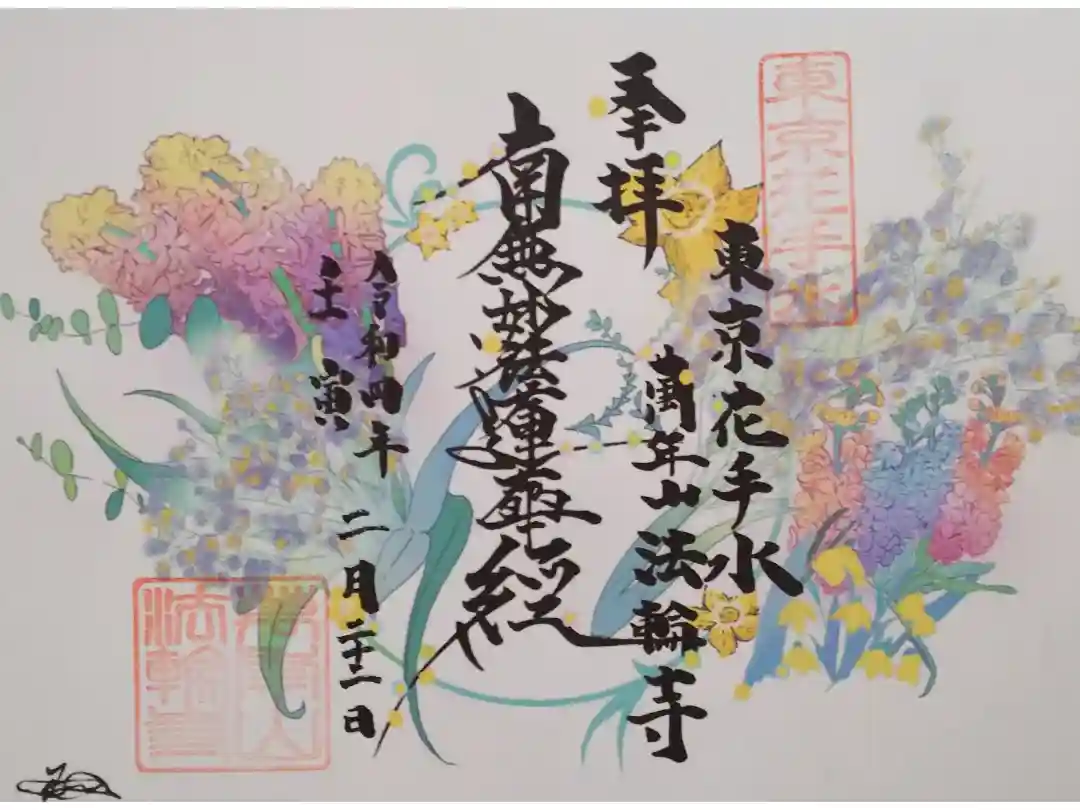 東京花手水
奉拝
東京花手水
萬年山法輪寺
南無妙法蓮華經
令和四年 二月二十二日
壬寅